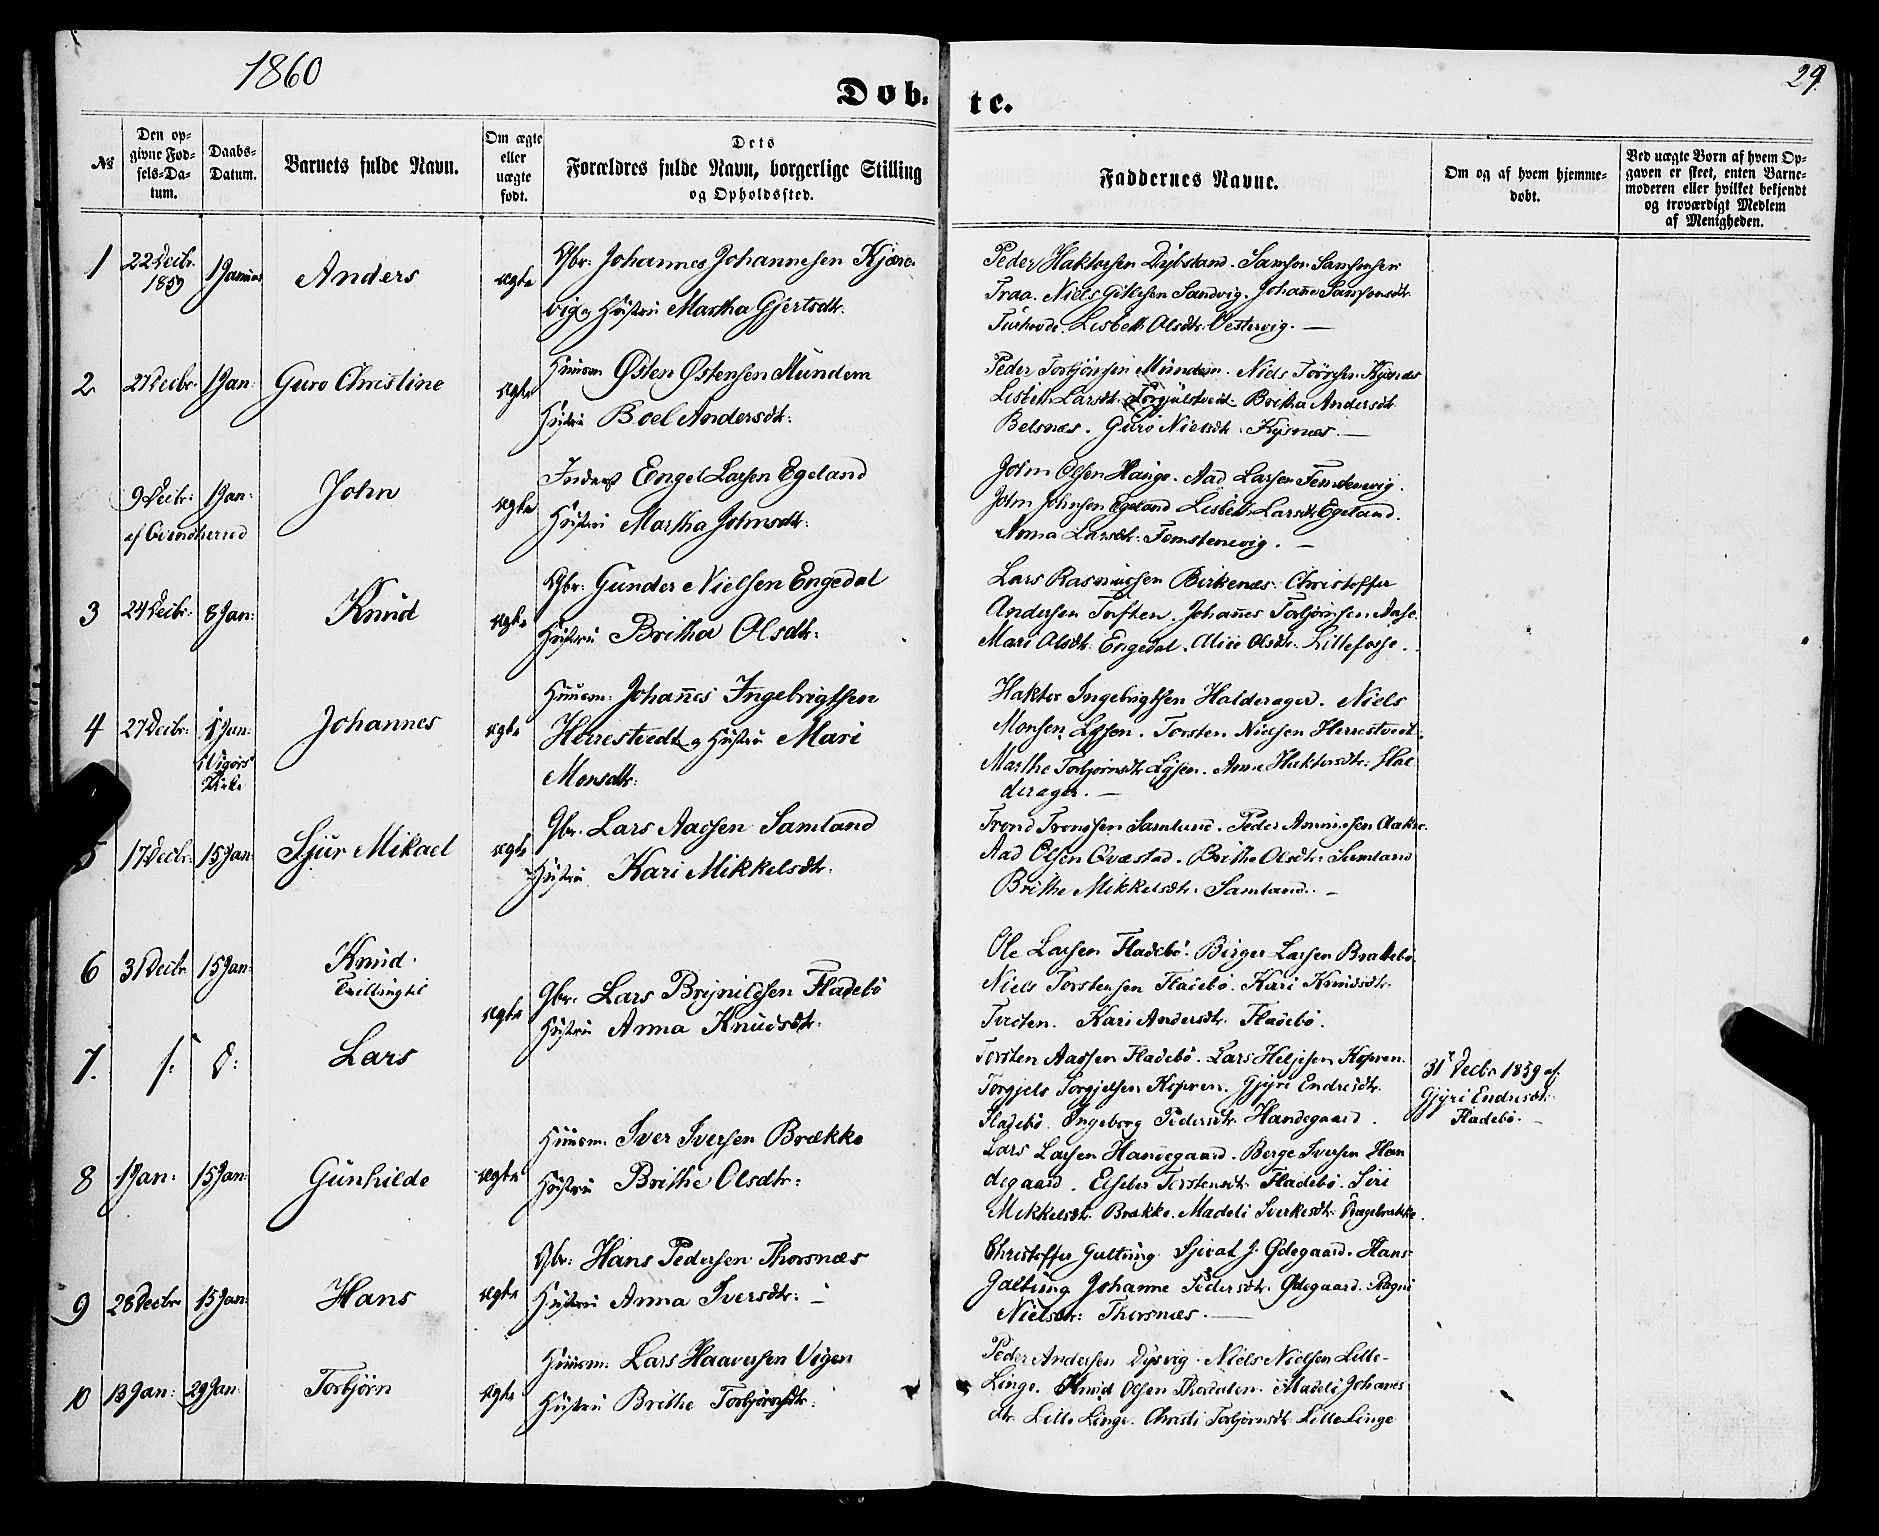 1860
29
Døb-
te.
No
Den op-
givne Fød-
sels-Da-
tum.
Daabs-
Datum.
Barnets fulde Navn.
Om ægte
eller
uægte
født.
Dets
Forældres fulde Navn, borgerlige Stilling
og Opholdssted.
Faddernes Navne.
Om og af hvem hjemme-
døbt.
Ved uægte Børn af hvem Op-
gaven er skeet, enten Barne-
moderen eller hvilket bekjendt
og troværdigt Medlem
af Menigheden.
1
22 Decbr.
1859
1 Januar
Anders
ægte
Gbr: Johannes Johannesen Kjære-
vig og Hüstrü Martha Gjertsdtr:
Peder Haktorsen Samson Samsonsen
Traa. Niels Gitlesen Sandvig. Johañe Samsonsdtr.
Lisbeth Olsdtr: Vestervig. —
2
27 Decbr
1 Jan:
Guro Christine
ægte
Huusm Østen Østensen Mundem
Hüstrü Boel Andersdtr:
Peder Torbjörnsen Mündem. Niels
Lisbeth Larsdtr. Britha Andersdtr
Belsnæs. Güro Nielsdtr. Kysnæs. —
9 Decbr:
af Qvindherred
1 Jan:
John
ægte
Inderst Engel Larsen Egeland
Hüstrü Martha Johnsdtr:
John Olsen Hauge. Aad Larsen Femstenevig.
John Johnsen Egeland Lisbeth Larsdtr Egeland.
Anna Larsdtr: Femstenevig. —
3
24 Decbr:
8 Jan:
Knüd
ægte
Gbr: Günder Nielsen Engedal
Hüstrü Britha Olsdtr:
Lars Rasmussen Birkenæs. Christoffer
Andersen Tuften. Johañes Torbjørnsen Aase.
Mari Olsdtr: Engedal. Alice Olsdtr: Lillefosse.
4
27 Decbr:
1 Jan:
Vigørs
Kirke
Johannes
ægte
Huusm: Johañes Ingebrigtsen
Herrestvedt og Hüstrü Mari
Monsdtr:
Haktor Ingebrigtsen Halderager. Niels
Monsen Lysen. Torsten Nielsen Herrestvedt.
Marthe Torbjørnsdtr Lysen. Anne Haktorsdtr: Hal
derager. —
5
17 Decbr:
15 Jan:
Sjur Mikael
ægte
Gbr. Lars Aadsen Samland
Hüstrü Kari Mikkelsdtr.
Trond Tronsen Samland. Peder Aakre.
Aad Olsen Qvæstad. Brithe Olsdtr: Samland
Brithe Mikkelsdtr. Samland. —
6
31 Decbr
15 Jan:
Knüd.
Tvilling til
ægte
Gbr. Lars Brynildsen Fladebø
Hüstrü Anna Knudsdtr.
Ole Larsen Fladebö. Birger Larsen Brattebö.
Niels Torstensen Fladebö. Kari Knudsdtr.
Tveiten. Kari Andersdtr. Fladebö.
7.
d:
Lars
Torsten Aadsen Fladebö. Lars Heljesen Kopren.
Torgjels Torgjelsen Kopren. Gjyri Endresdtr.
Fladebö. Ingeborg Pedersdtr. Handegaard.
31 Decbr 1859 af
Gjyri Endresdtr.
Fladebö.
8
1 Jan:
15 Jan:
Günhilde
ægte
Huusm. Iver Iversen Brække
Hüstrü Brithe Olsdtr:
Lars Larsen Handegaard. Berge Iversen Han
degaard. Elsebe Torstensdtr. Fladebö. Siri
Mikkelsdtr. Brække. Madeli Sverkesdtr.
9
28 Decbr
15 Jan:
Hans
ægte
Gbr: Hans Pedersen Thorsnæs
Hüstrü Anna Iversdtr: —
Christoffer Galtung. Sjovat J. Ødegaard. Hans
Galtung Johanne Pedersdtr. Ødegaard. Ragni
Nielsdtr: Thorsnæs. —
10
13 Jan:
29 Jan:
Torbjörn
ægte
Huusm: Lars Haaversen Vigen
Hüstrü Brithe Torbjørnsdtr:
Peder Andersen Dysvig. Niels Nielsen Lille-
Linge. Knud Olsen Thordalen. Madeli Johañes
dtr. Lille Linge. Christi Torbjørnsdtr: Lille Linge